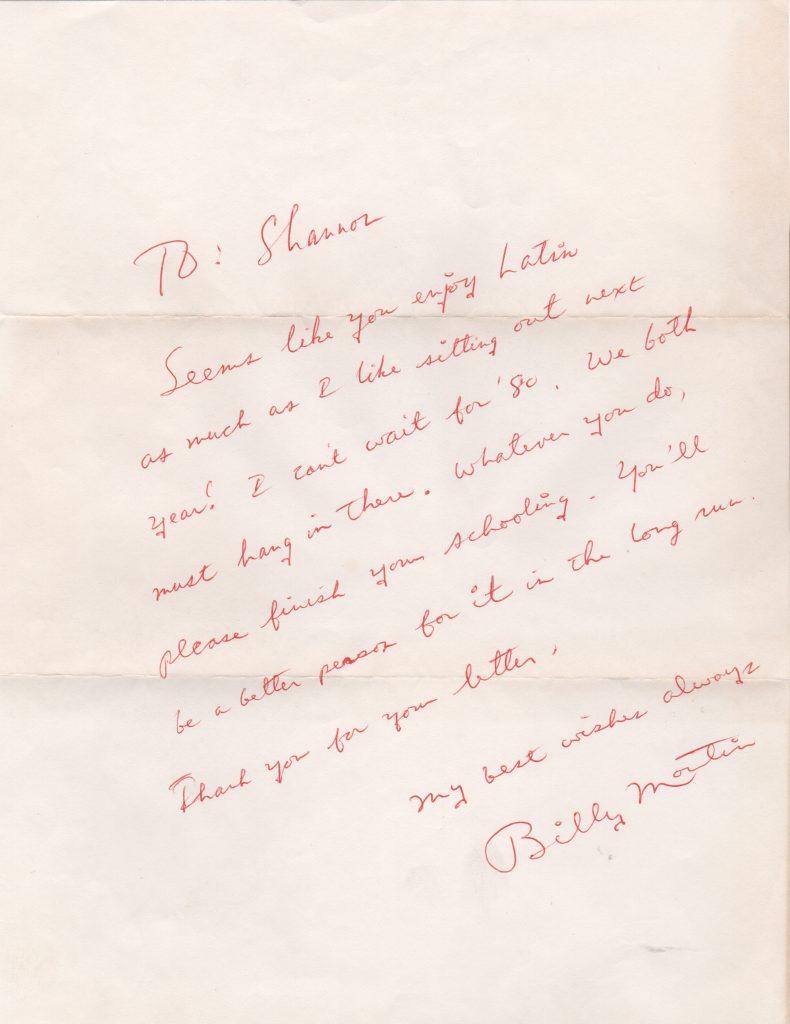 To: Shannon
Seems like you enjoy Latin
as much as I like sitting out next
year! I can't wait for '80. We both
must hang in there. Whatever you do,
please finish your schooling. You'll
be a better person for it in the long run.
Thank you for your letter.
My best wishes always
Billy Martin